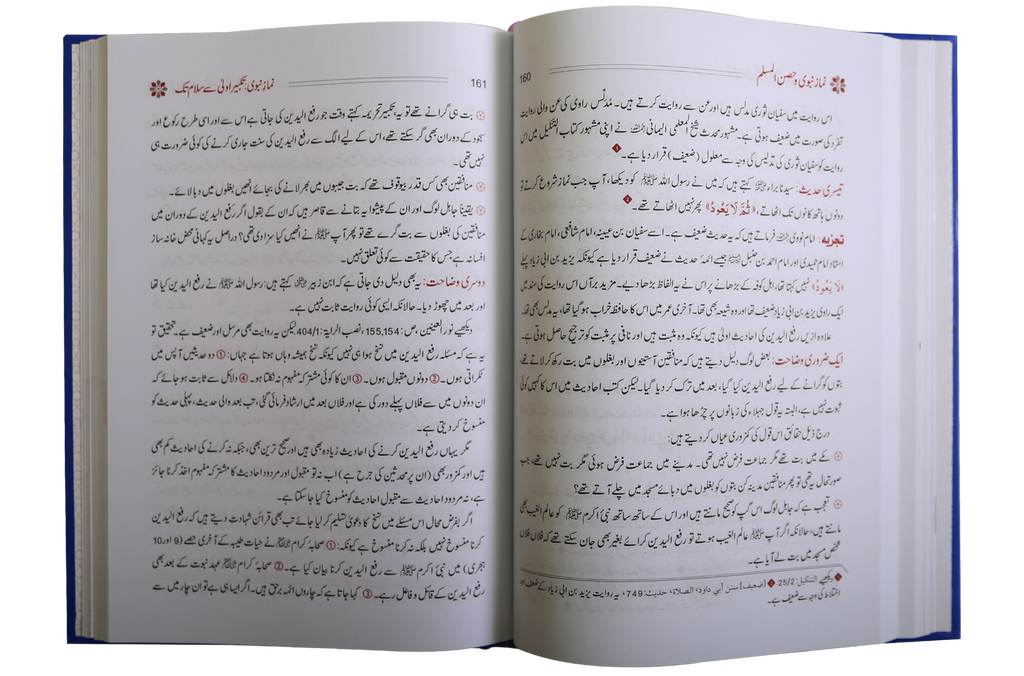 160 نماز نبوی و حصن المسلم
اس روایت میں سفیان ثوری مدلس ہیں اور عن سے روایت کرتے ہیں۔ مُدلّس راوی کی عن والی روایت
تفرد کی صورت میں ضعیف ہوتی ہے۔ مشہور محدث شیخ المعلمی الیمانی رحمہ اللہ نے اپنی مشہور کتاب التنکیل میں اس
روایت کو سفیان ثوری کی تدلیس کی وجہ سے معلول (ضعیف) قرار دیا ہے۔ 1
تیسری حدیث: سیدنا براء رضی اللہ عنہ کہتے ہیں کہ میں نے رسول اللہ ﷺ کو دیکھا، آپ جب نماز شروع کرتے تو
دونوں ہاتھ کانوں تک اٹھاتے، «ثُمَّ لَا يَعُودُ» پھر نہیں اٹھاتے تھے۔ 2
تجزیہ: امام نووی رحمہ اللہ فرماتے ہیں کہ یہ حدیث ضعیف ہے۔ اسے سفیان بن عیینہ، امام شافعی، امام بخاری کے
استاد امام حمیدی اور امام احمد بن حنبل جیسے ائمۂ حدیث نے ضعیف قرار دیا ہے کیونکہ یزید بن ابی زیاد پہلے
«لَا يَعُودُ» نہیں کہتا تھا، اہل کوفہ کے پڑھانے پر اس نے یہ الفاظ بڑھا دیے۔ مزید برآں اس روایت کی سند میں
ایک راوی یزید بن ابی زیاد ضعیف تھا اور وہ شیعہ بھی تھا۔ آخری عمر میں اس کا حافظہ خراب ہو گیا تھا، نیز یہ مدلس بھی تھا۔
علاوہ ازیں رفع الیدین کی احادیث اولیٰ ہیں کیونکہ وہ مثبت ہیں اور نافی پر مثبت کو ترجیح حاصل ہوتی ہے۔
ایک ضروری وضاحت: بعض لوگ دلیل دیتے ہیں کہ منافقین آستینوں اور بغلوں میں بت رکھ کر لاتے تھے،
بتوں کو گرانے کے لیے رفع الیدین کیا گیا، بعد میں ترک کر دیا گیا۔ لیکن کتب احادیث میں اس کا کہیں کوئی
ثبوت نہیں ہے، البتہ یہ قول جہلاء کی زبانوں پر چڑھا ہوا ہے۔
درج ذیل حقائق اس قول کی کمزوری عیاں کر دیتے ہیں:
مکے میں بت تھے مگر جماعت فرض نہیں تھی۔ مدینے میں جماعت فرض ہوئی مگر بت نہیں تھے، جب
صورتحال یہ تھی تو پھر منافقین مدینہ کن بتوں کو بغلوں میں دبائے مسجد میں چلے آتے تھے؟
تعجب ہے کہ جاہل لوگ اس گپ کو صحیح مانتے ہیں اور اس کے ساتھ ساتھ نبی اکرم ﷺ کو عالم الغیب بھی
مانتے ہیں، حالانکہ اگر آپ ﷺ عالم الغیب ہوتے تو رفع الیدین کرائے بغیر بھی جان سکتے تھے کہ فلاں فلاں
شخص مسجد میں بت لے آیا ہے۔
1 دیکھیے التنکیل: 25/2. 2 [ضعیف] سنن أبي داود، الصلاة، حدیث: 749، یہ روایت یزید بن ابی زیاد کے ضعف اور
اختلاط کی وجہ سے ضعیف ہے۔
نماز نبوی: تکبیر اولیٰ سے سلام تک 161
بت ہی گرانے تھے تو یہ، تکبیر تحریمہ کہتے وقت جو رفع الیدین کی جاتی ہے اس سے اور اسی طرح رکوع اور
سجود کے دوران بھی گر سکتے تھے، اس کے لیے الگ سے رفع الیدین کی سنت جاری کرنے کی کوئی ضرورت ہی
نہیں تھی۔
منافقین بھی کس قدر بیوقوف تھے کہ بت جیبوں میں بھر لانے کی بجائے انھیں بغلوں میں دبا لائے۔
یقیناً جاہل لوگ اور ان کے پیشوا یہ بتانے سے قاصر ہیں کہ ان کے بقول اگر رفع الیدین کے دوران میں
منافقین کی بغلوں سے بت گرے تھے تو پھر آپ ﷺ نے انھیں کیا سزا دی تھی؟ دراصل یہ کہانی محض خانہ ساز
افسانہ ہے جس کا حقیقت سے کوئی تعلق نہیں۔
دوسری وضاحت: یہ بھی دلیل دی جاتی ہے کہ ابن زبیر رضی اللہ عنہ کہتے ہیں: رسول اللہ ﷺ نے رفع الیدین کیا تھا
اور بعد میں چھوڑ دیا۔ حالانکہ ایسی کوئی روایت ثابت نہیں ہے۔
دیکھیے نور العینین، ص: 155,154، نصب الرایة: 404/1 لیکن یہ روایت بھی مرسل اور ضعیف ہے۔ تحقیق تو
یہ ہے کہ مسئلہ رفع الیدین میں نسخ ہوا ہی نہیں کیونکہ نسخ ہمیشہ وہاں ہوتا ہے جہاں: ① دو حدیثیں آپس میں
ٹکراتی ہوں۔ ② دونوں مقبول ہوں۔ ③ ان کا کوئی مشترکہ مفہوم نہ نکلتا ہو۔ ④ دلائل سے ثابت ہو جائے کہ
ان دونوں میں سے فلاں پہلے دور کی ہے اور فلاں بعد میں ارشاد فرمائی گئی، تب بعد والی حدیث، پہلی حدیث کو
منسوخ کر دیتی ہے۔
مگر یہاں رفع الیدین کرنے کی احادیث زیادہ بھی ہیں اور صحیح ترین بھی، جبکہ نہ کرنے کی احادیث کم بھی
ہیں اور کمزور بھی (ان پر محدثین کی جرح ہے) اب نہ تو مقبول اور مردود احادیث کا مشترکہ مفہوم اخذ کرنا جائز
ہے، نہ مردود احادیث سے مقبول احادیث کو منسوخ کیا جا سکتا ہے۔
اگر بفرض محال اس مسئلہ میں نسخ کا دعویٰ تسلیم کر لیا جائے تب بھی قرائن شہادت دیتے ہیں کہ رفع الیدین
کرنا منسوخ نہیں بلکہ نہ کرنا منسوخ ہے کیونکہ: ① صحابۂ کرام نے حیات طیبہ کے آخری حصے (9 اور 10
ہجری) میں نبی اکرم ﷺ سے رفع الیدین کرنا بیان کیا ہے۔ ② صحابۂ کرام عہد نبوت کے بعد بھی
رفع الیدین کے قائل و فاعل رہے۔ ③ کہا جاتا ہے کہ چاروں ائمہ برحق ہیں۔ اگر ایسا ہی ہے تو ان چار میں سے